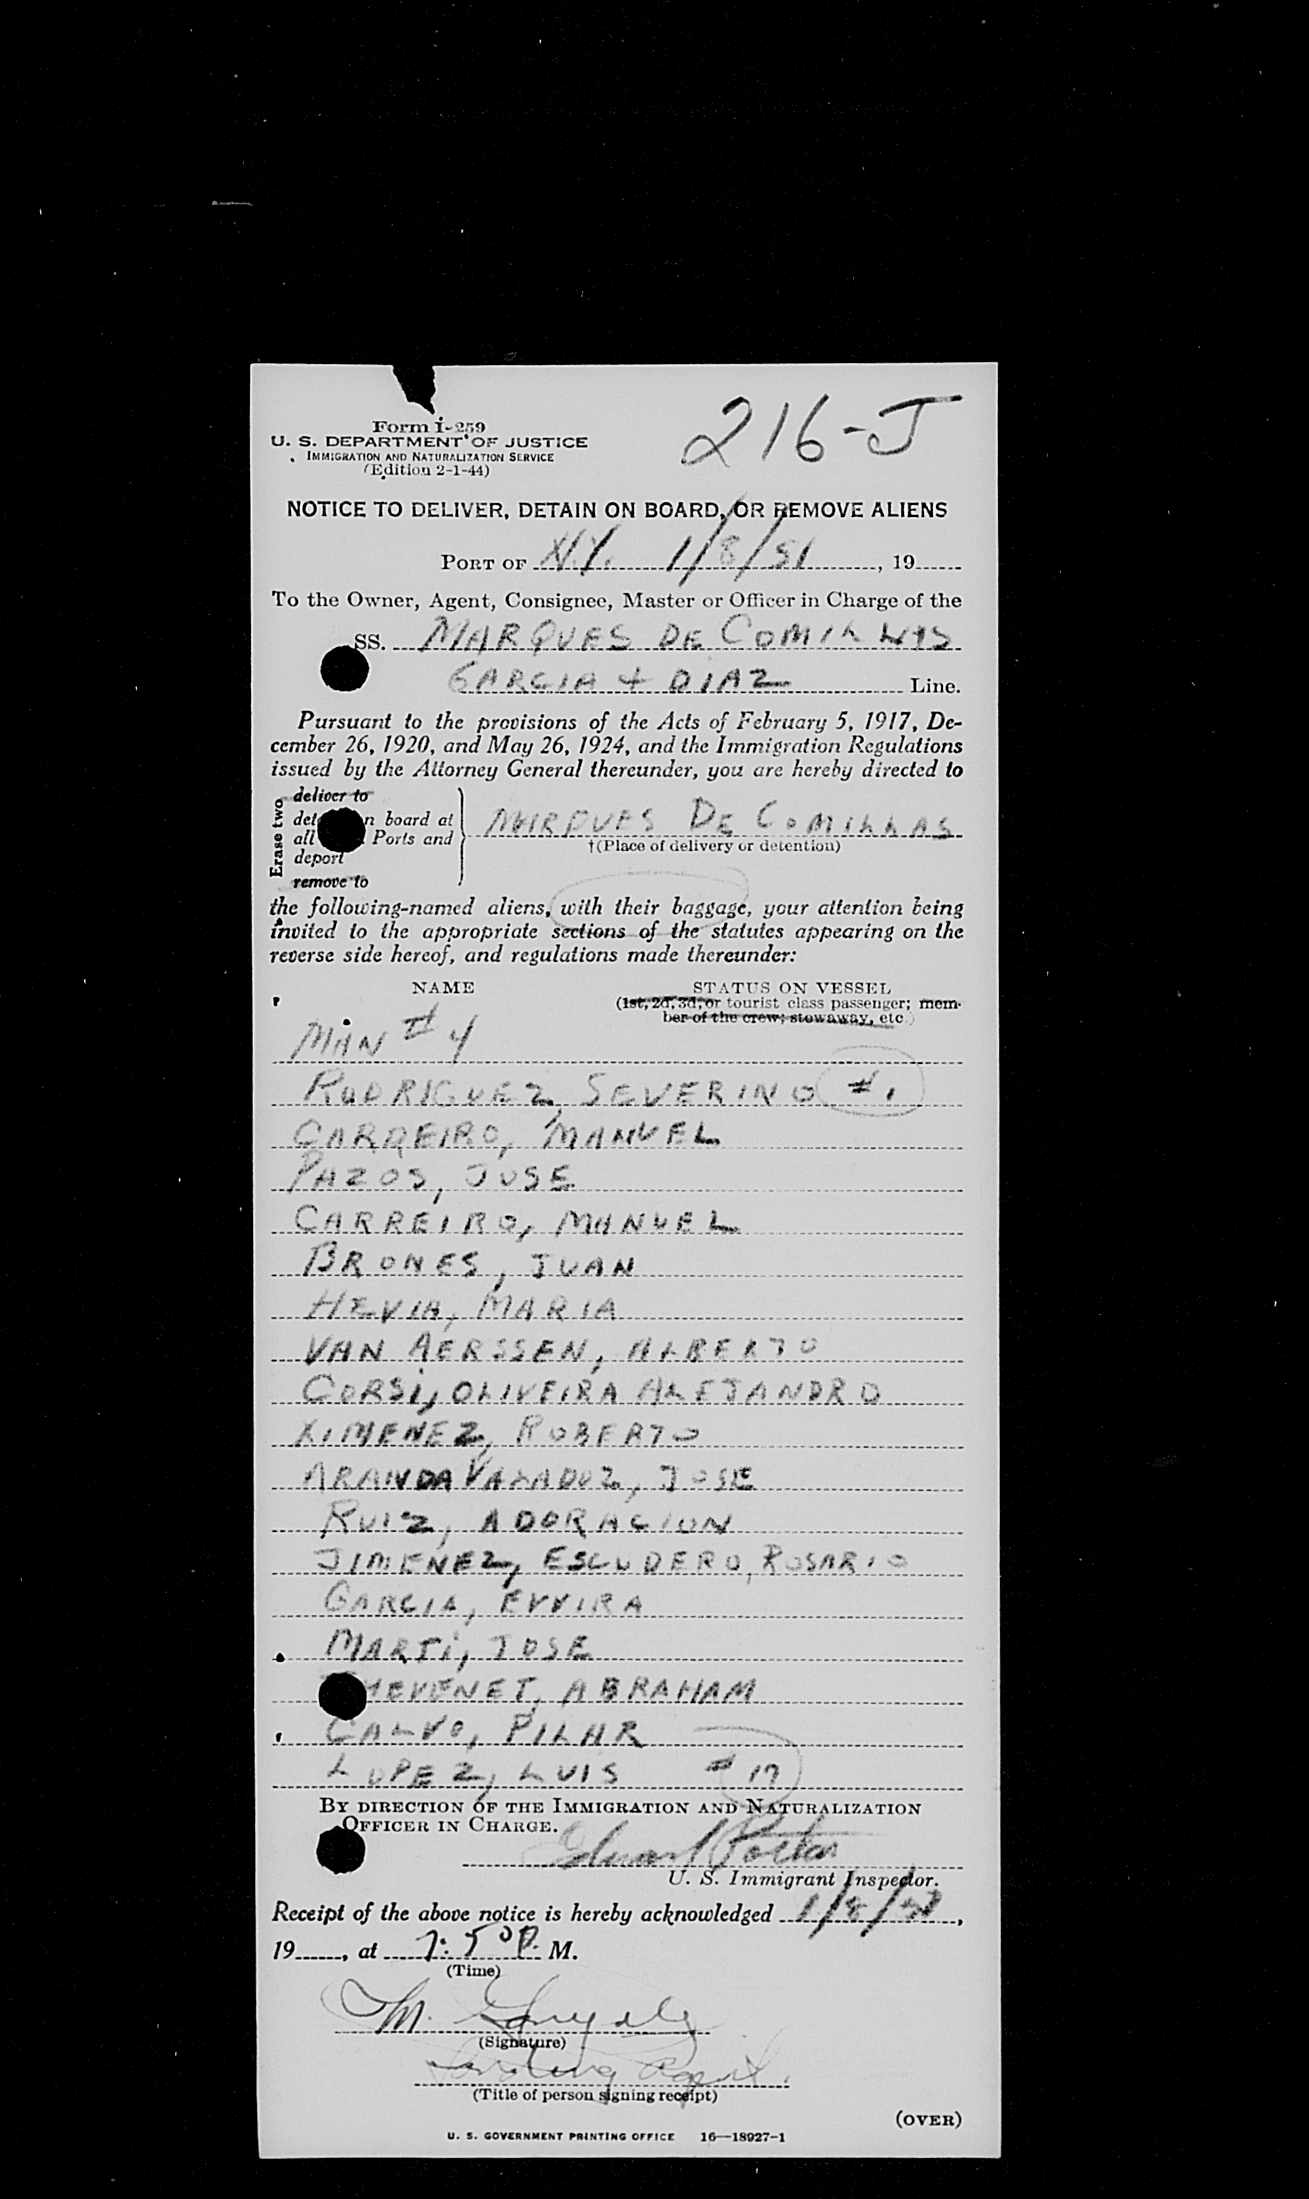 216-J
Form I-259
U. S. DEPARTMENT OF JUSTICE
IMMIGRATION AND NATURALIZATION SERVICE
(Edition 2-1-44)
NOTICE TO DELIVER, DETAIN ON BOARD, OR REMOVE ALIENS
PORT OF N.Y. 1/8/51, 19
To the Owner, Agent, Consignee, Master or Officer in Charge of the
SS. MARQUES DE COMILLAS
GARCIA + DIAZ Line.
Pursuant to the provisions of the Acts of February 5, 1917, De-
cember 26, 1920, and May 26, 1924, and the Immigration Regulations
issued by the Attorney General thereunder, you are hereby directed to
Erase two
deliver to
det n board at
all Ports and
deport
remove to
MARQUES DE COMILLAS
†(Place of delivery or detention)
the following-named aliens, with their baggage, your attention being
invited to the appropriate sections of the statutes appearing on the
reverse side hereof, and regulations made thereunder:
NAME STATUS ON VESSEL
(1st, 2d, 3d, or tourist class passenger; mem-
ber of the crew; stowaway, etc.)
MAN # 4
RODRIGUEZ, SEVERINO #1
CARREIRO, MANUEL
PAZOS, JOSE
CARREIRO, MANUEL
BRONES, JUAN
HEVIA, MARIA
VAN AERSSEN, ALBERTO
CORSI, OLIVEIRA ALEJANDRO
XIMENEZ, ROBERTO
ARANDA VALADOZ, JOSE
RUIZ, ADORACION
JIMENEZ, ESCUDERO, ROSARIO
GARCIA, EVVIRA
MARTI, JOSE
HEVENET, ABRAHAM
CALVO, PILAR
LOPEZ, LUIS #17
BY DIRECTION OF THE IMMIGRATION AND NATURALIZATION
OFFICER IN CHARGE.
U. S. Immigrant Inspector.
Receipt of the above notice is hereby acknowledged 1/8/51,
19, at 7:50 P. M.
(Time)
M.
(Signature)
(Title of person signing receipt)
(OVER)
U. S. GOVERNMENT PRINTING OFFICE 16—18927-1